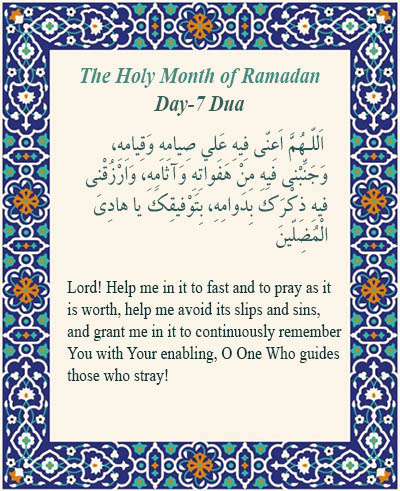 The Holy Month of Ramadan
Day-7 Dua
اَللّـهُمَّ اَعِنّى فيهِ عَلي صِيامِهِ وَقِيامِهِ،
وَجَنِّبْنى فيهِ مِنْ هَفَواتِهِ وَآثامِهِ، وَارْزُقْنى
فيهِ ذِكْرَكَ بِدَوامِهِ، بِتَوْفيقِكَ يا هادِىَ
الْمُضِلّينَ
Lord! Help me in it to fast and to pray as it
is worth, help me avoid its slips and sins,
and grant me in it to continuously remember
You with Your enabling, O One Who guides
those who stray!